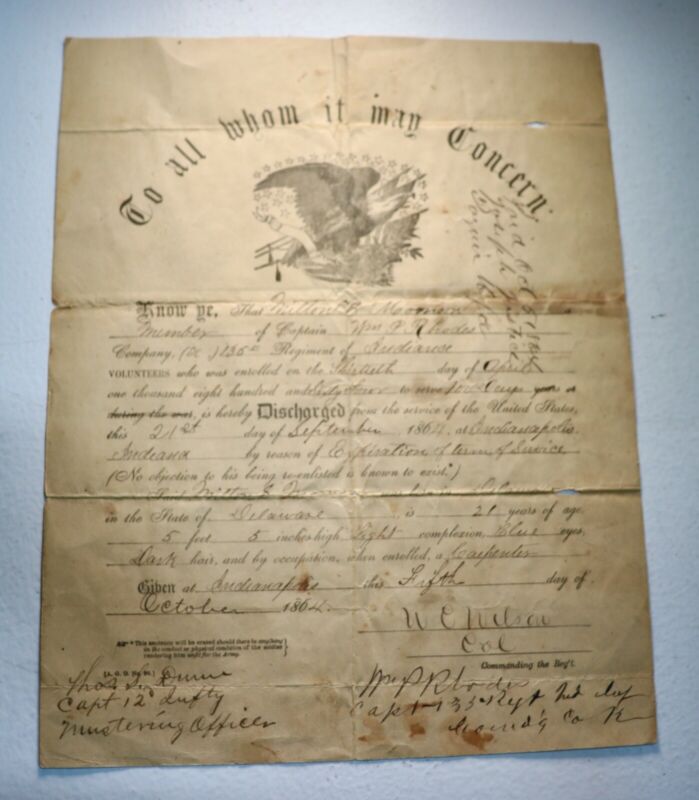 To all whom it may Concern:
Know ye, That Milton B Moomon a
Member of Captain Wm P. Rhodes
Company, (K) 135th Regiment of Indiana
VOLUNTEERS who was enrolled on the Thirtieth day of April
one thousand eight hundred and Sixty four to serve 100 Days years or
during the war, is hereby Discharged from the service of the United States,
this 21st day of September, 1864, at Indianapolis
Indiana by reason of Expiration of term of Service
(No objection to his being re-enlisted is known to exist.*)
Said Milton was born in Delaware
in the State of Delaware, is 21 years of age,
5 feet 5 inches high, Light complexion, Blue eyes,
Dark hair, and by occupation, when enrolled, a Carpenter
Given at Indianapolis this Fifth day of
October 1864.
W C Wilson
Col
Commanding the Reg't.
*This sentence will be erased should there be anything
in the conduct or physical condition of the soldier
rendering him unfit for the Army.
[A. G. O. No. 99.]
Thos S. Dunn
Capt 12th Infty
Mustering Officer
Wm P Rhodes
Capt 135 Regt Ind Inf
Comd'g Co K
Paid Oct 5 1864
Joseph